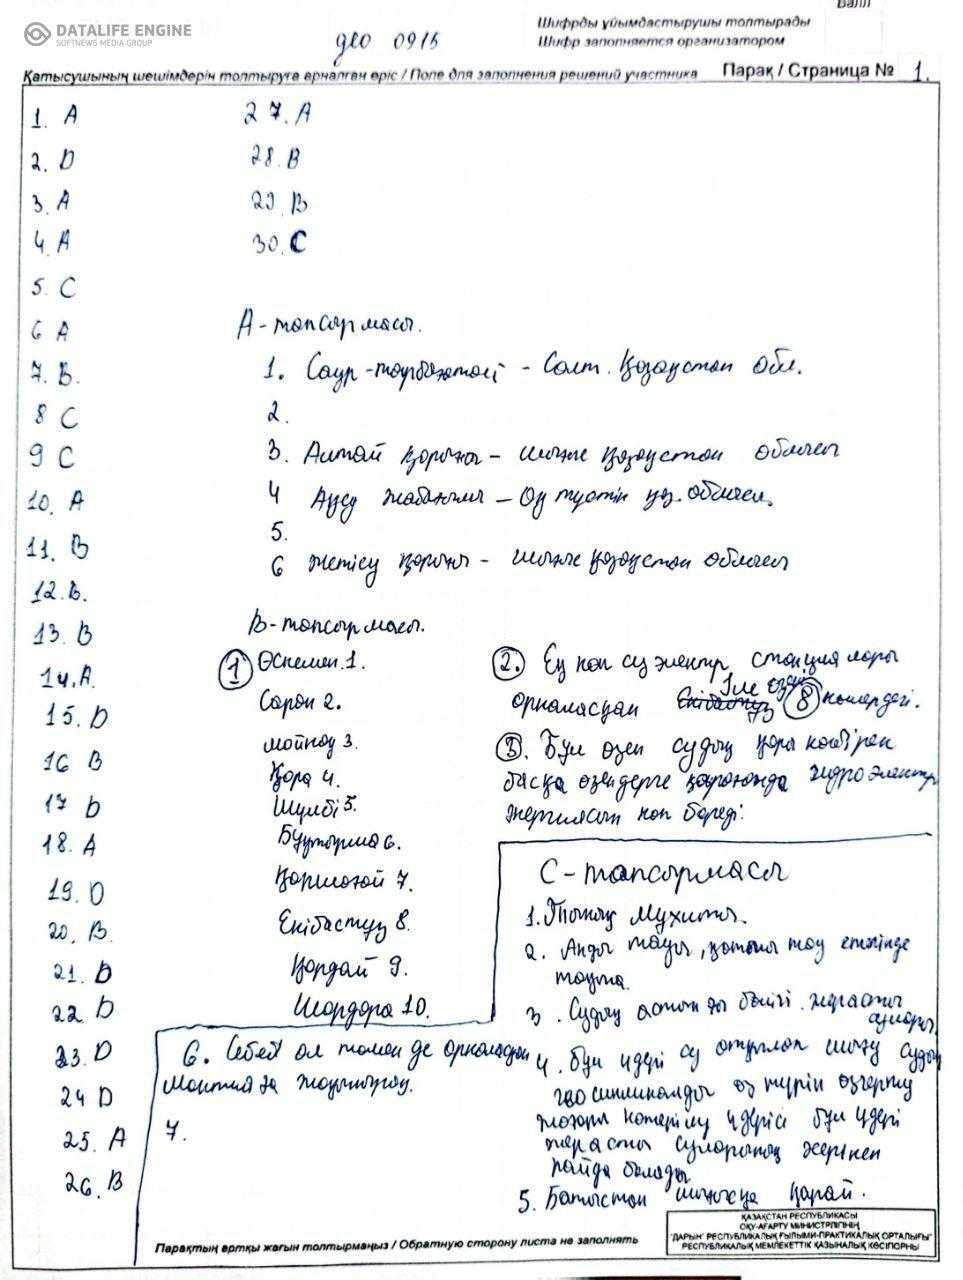 Балл
DATALIFE ENGINE
SOFTNEWS MEDIA GROUP
geo 0915
Шифрды ұйымдастырушы толтырады
Шифр заполняется организатором
Қатысушының шешімдерін толтыруға арналған өріс / Поле для заполнения решений участника
Парақ / Страница № 1.
1. A
2. D
3. A
4. A
5. C
6 A
7. B.
8 C
9 C
10. A
11. B
12. B.
13. B
14. A.
15. D
16 B
17 D
18. A
19. D
20. B.
21. D
22 D
23. D
24 D
25. A
26. B
27. A
28. B
29. B
30. C
A-тапсырмасы.
1. Саур-тарбағатай - Солт. Қазақстан обл.
2.
3. Алтай қорығы - шығыс қазақстан облысы
4 Ақсу жабағылы - Оңтүстік қаз. облысы.
5.
6 Жетісу қорығы - шығыс қазақстан облысы
B-тапсырмасы.
1 Өскемен 1.
Саран 2.
мойнақ 3.
Қора 4.
Шүлбі 5.
Бұқтырма 6.
Қапшағай 7.
Екібастұз 8.
Қордай 9.
Шардара 10.
2. Ең көп су электр станциялары
орналасқан Іле өзені 8 нөмердегі.
3. Бұл өзен судың қоры көбірек
басқа өзендерге қарағанда гидроэлектр
энергиясын көп береді.
C-тапсырмасы
1. Тынық Мұхиты.
2. Анды тауы, қатпарлы тау
3. Судың астынғы бөлігі. жерасты
сулары
4. Бұл үдері су
өзгерту
көтерілу үдерісі бұл үдері
жерасты суларының жерінен
пайда болады
5. Батыстан шығысқа қарай.
6. Себебі ол төмен де орналасқан
7.
Парақтың артқы жағын толтырмаңыз / Обратную сторону листа не заполнять
ҚАЗАҚСТАН РЕСПУБЛИКАСЫ
ОҚУ-АҒАРТУ МИНИСТРЛІГІНІҢ
"ДАРЫН" РЕСПУБЛИКАЛЫҚ ҒЫЛЫМИ-ПРАКТИКАЛЫҚ ОРТАЛЫҒЫ"
РЕСПУБЛИКАЛЫҚ МЕМЛЕКЕТТІК ҚАЗЫНАЛЫҚ КӘСІПОРНЫ